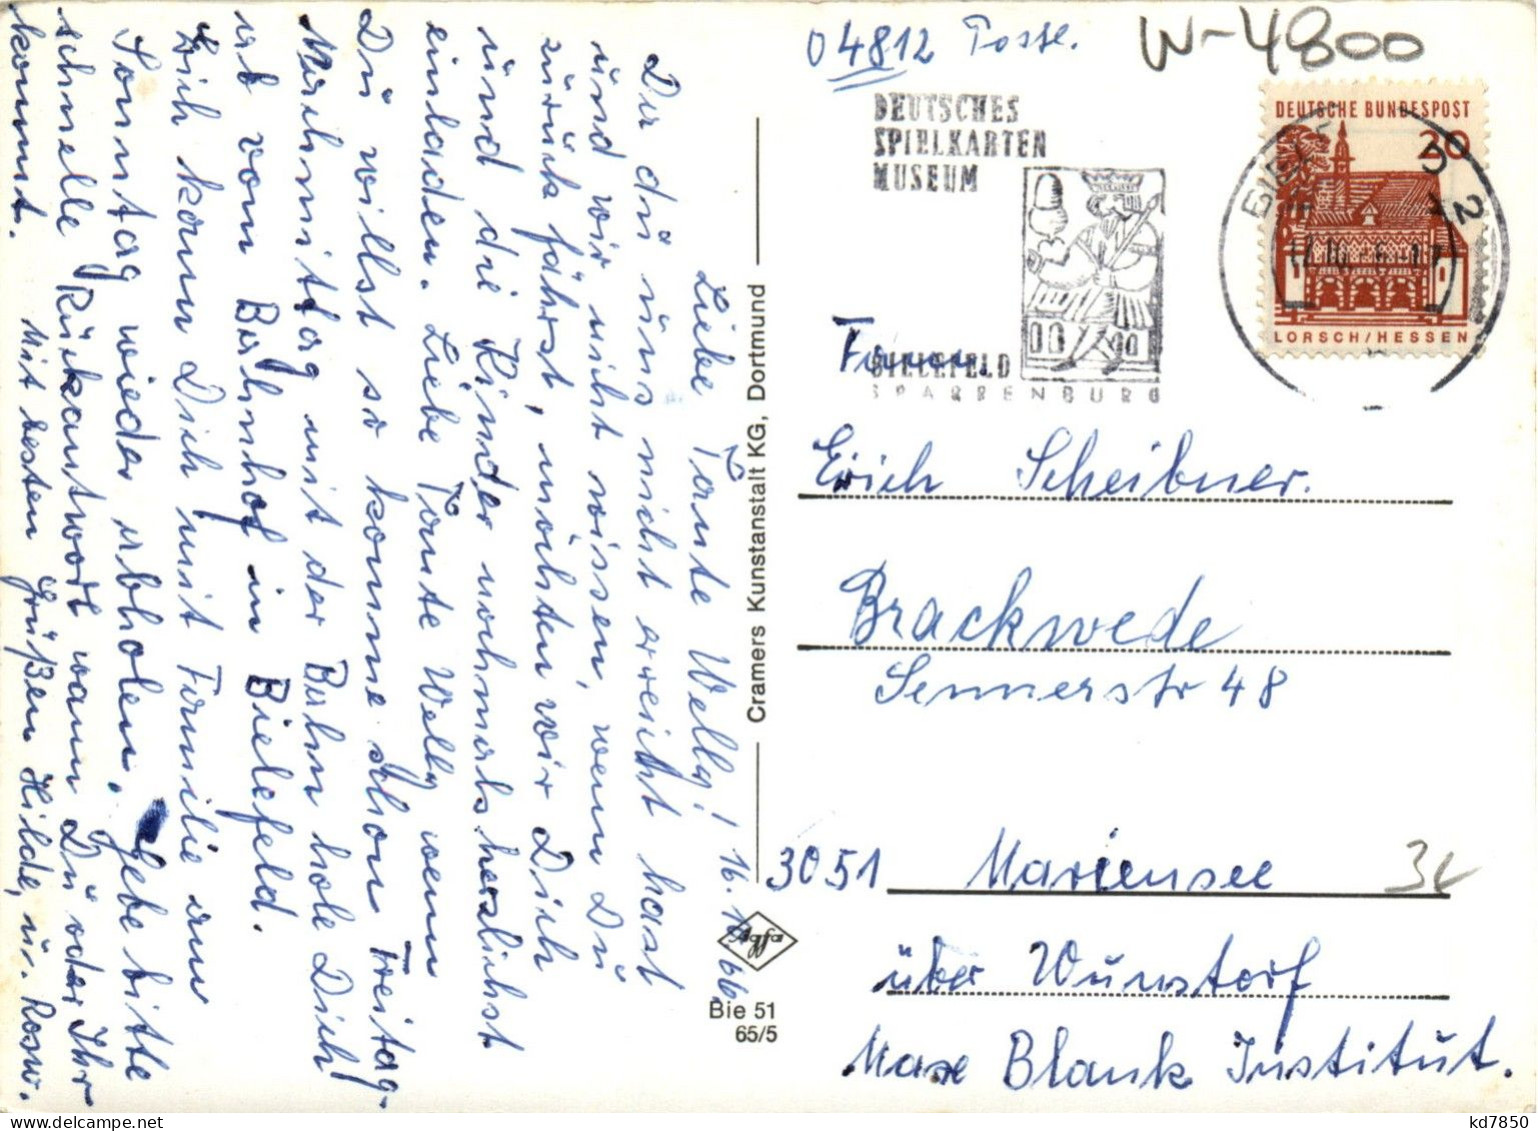 04812 Posse.
W-4800
DEUTSCHES
SPIELKARTEN
MUSEUM
BIELEFELD
SPARRENBURG
DEUTSCHE BUNDESPOST
20
LORSCH/HESSEN
BIELE
2
Liebe Tante Welly! 16.10.66
Da dü üns nicht erreicht hast
ünd wir nicht wissen, wenn Dü
zürück fährst, möchten wir Dich
ünd die Kinder nochmals herzlichst
einladen. Liebe Tante Welly wenn
Dü willst so komme schon Freitag-
Nachmittag mit der Bahn hole Dich
ab vom Bahnhof in Bielefeld.
Dich kann Dich mit Familie am
Sonntag wieder abholen. Gebe bitte
schnelle Rückantwort wann Dü oder Ihr
kommt. Mit besten Grüßen Hilde, ü. Rosw.
Cramers Kunstanstalt KG, Dortmund
Agfa
Bie 51
65/5
Fam.
Erich Scheibner.
Brackwede
Sennerstr 48
3051 Mariensee
34
über Wünstorf
Max Blank Institüt.
kd7850